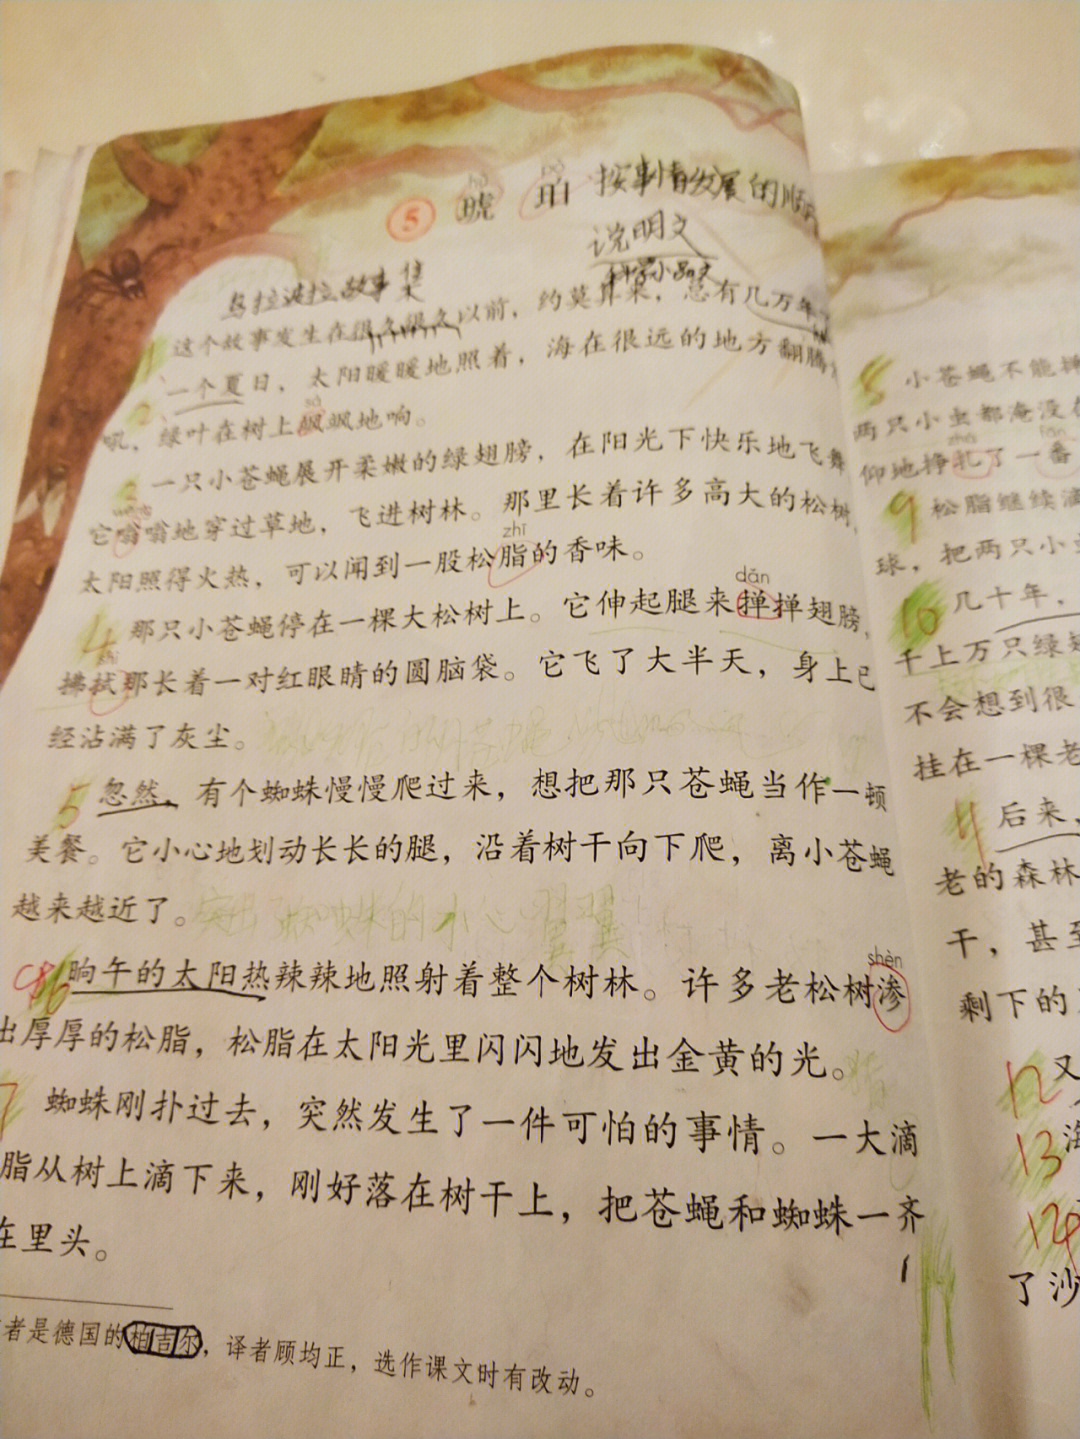 5 琥珀
按事情发展的顺
说明文
科学小品文
乌拉波拉故事集
1 这个故事发生在很久很久以前，约莫算来，总有几万年
2 一个夏日，太阳暖暖地照着，海在很远的地方翻腾
sà
吼，绿叶在树上飒飒地响。
3 一只小苍蝇展开柔嫩的绿翅膀，在阳光下快乐地飞舞
它嗡嗡地穿过草地，飞进树林。那里长着许多高大的松树，
zhī
太阳照得火热，可以闻到一股松脂的香味。
dǎn
4 那只小苍蝇停在一棵大松树上。它伸起腿来掸掸翅膀，
shì
拂拭那长着一对红眼睛的圆脑袋。它飞了大半天，身上已
经沾满了灰尘。
5 忽然，有个蜘蛛慢慢爬过来，想把那只苍蝇当作一顿
美餐。它小心地划动长长的腿，沿着树干向下爬，离小苍蝇
越来越近了。
突出蜘蛛的小心翼翼
shèn
6 晌午的太阳热辣辣地照射着整个树林。许多老松树渗
出厚厚的松脂，松脂在太阳光里闪闪地发出金黄的光。
7 蜘蛛刚扑过去，突然发生了一件可怕的事情。一大滴
脂从树上滴下来，刚好落在树干上，把苍蝇和蜘蛛一齐
在里头。
者是德国的柏吉尔，译者顾均正，选作课文时有改动。
8 小苍蝇不能掸
两只小虫都淹没在
zhá fān
仰地挣扎了一番
9 松脂继续滴
球，把两只小虫
10 几十年，
千上万只绿翅
不会想到很
挂在一棵老
11 后来，
老的森林
干，甚至
剩下的
12 又
13 海
14
了沙